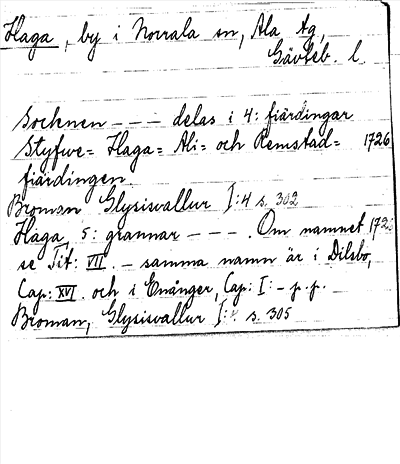 Haga, by i Norrala sn, Ala tg,
Gävleb. l.
Socknen - - - delas i 4: fiärdingar
Styfwe= Haga= Ali= och Remstad= 1726
fiärdingen.
Broman Glysisvallur I:4 s. 302
Haga, 5: grannar - - - . Om namnet 172
se Tit: VII. - samma namn är i Dilsbo,
Cap: XVI. och i Enånger, Cap: I: - p. p.
Broman, Glysisvallur I: s. 305